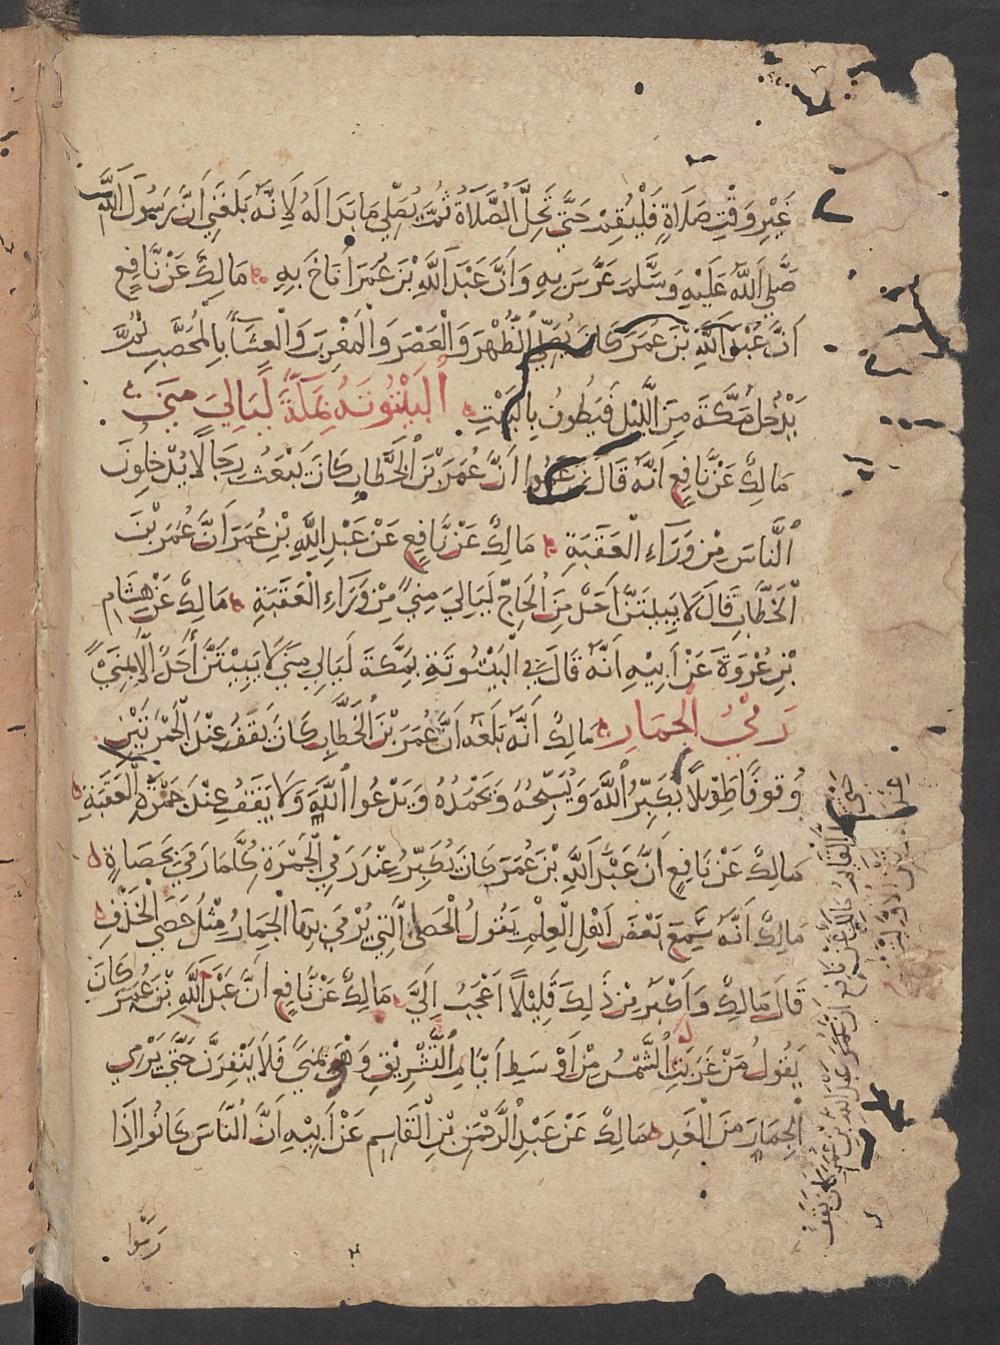 غَيْرِ وَقْتِ صَلَاةٍ فَلْيُقِمْ حَتَّى تَحِلَّ الصَّلَاةُ ثُمَّ يُصَلِّي مَا بَدَا لَهُ لِأَنَّهُ بَلَغَنِي أَنَّ رَسُولَ اللَّهِ
صَلَّى اللَّهُ عَلَيْهِ وَسَلَّمَ عَرَّسَ بِهِ وَأَنَّ عَبْدَ اللَّهِ بْنَ عُمَرَ أَنَاخَ بِهِ مَالِكٌ عَنْ نَّافِعٍ
أَنَّ عَبْدَ اللَّهِ بْنَ عُمَرَ كَانَ يُصَلِّي الظُّهْرَ وَالْعَصْرَ وَالْمَغْرِبَ وَالْعِشَاءَ بِالْمُحَصَّبِ ثُمَّ
يَدْخُلُ مَكَّةَ مِنَ اللَّيْلِ فَيَطُوفُ بِالْبَيْتِ الْبَيْتُوتَةُ بِمَكَّةَ لَيَالِيَ مِنًى
مَالِكٌ عَنْ نَّافِعٍ أَنَّهُ قَالَ زَعَمُوا أَنَّ عُمَرَ بْنَ الْخَطَّابِ كَانَ يَبْعَثُ رِجَالًا يُدْخِلُونَ
النَّاسَ مِنْ وَرَاءِ الْعَقَبَةِ مَالِكٌ عَنْ نَّافِعٍ عَنْ عَبْدِ اللَّهِ بْنِ عُمَرَ أَنَّ عُمَرَ بْنَ
الْخَطَّابِ قَالَ لَا يَبِيتَنَّ أَحَدٌ مِنَ الْحَاجِّ لَيَالِيَ مِنًى مِنْ وَرَاءِ الْعَقَبَةِ مَالِكٌ عَنْ هِشَامِ
بْنِ عُرْوَةَ عَنْ أَبِيهِ أَنَّهُ قَالَ فِي الْبَيْتُوتَةِ بِمَكَّةَ لَيَالِيَ مِنًى لَا يَبِيتَنَّ أَحَدٌ إِلَّا بِمِنًى
رَمْيُ الْجِمَارِ مَالِكٌ أَنَّهُ بَلَغَهُ أَنَّ عُمَرَ بْنَ الْخَطَّابِ كَانَ يَقِفُ عِنْدَ الْجَمْرَتَيْنِ
وُقُوفًا طَوِيلًا يُكَبِّرُ اللَّهَ وَيُسَبِّحُهُ وَيَحْمَدُهُ وَيَدْعُوا اللَّهَ وَلَا يَقِفُ عِنْدَ جَمْرَةِ الْعَقَبَةِ
مَالِكٌ عَنْ نَافِعٍ أَنَّ عَبْدَ اللَّهِ بْنَ عُمَرَ كَانَ يُكَبِّرُ عِنْدَ رَمْيِ الْجَمْرَةِ كُلَّمَا رَمَى بِحَصَاةٍ
مَالِكٌ أَنَّهُ سَمِعَ بَعْضَ أَهْلِ الْعِلْمِ يَقُولُ الْحَصَى الَّتِي يُرْمَى بِهَا الْجِمَارُ مِثْلُ حَصَى الْخَذْفِ
قَالَ مَالِكٌ وَأَكْبَرُ مِنْ ذَلِكَ قَلِيلًا أَعْجَبُ إِلَيَّ مَالِكٌ عَنْ نَّافِعٍ أَنَّ عَبْدَ اللَّهِ بْنَ عُمَرَ كَانَ
يَقُولُ مَنْ غَرَبَتْ لَهُ الشَّمْسُ مِنْ أَوْسَطِ أَيَّامِ التَّشْرِيقِ وَهُوَ بِمِنًى فَلَا يَنْفِرَنَّ حَتَّى يَرْمِيَ
الْجِمَارَ مِنَ الْغَدِ مَالِكٌ عَنْ عَبْدِ الرَّحْمَنِ بْنِ الْقَاسِمِ عَنْ أَبِيهِ أَنَّ النَّاسَ كَانُوا إِذَا
رَمَوُا